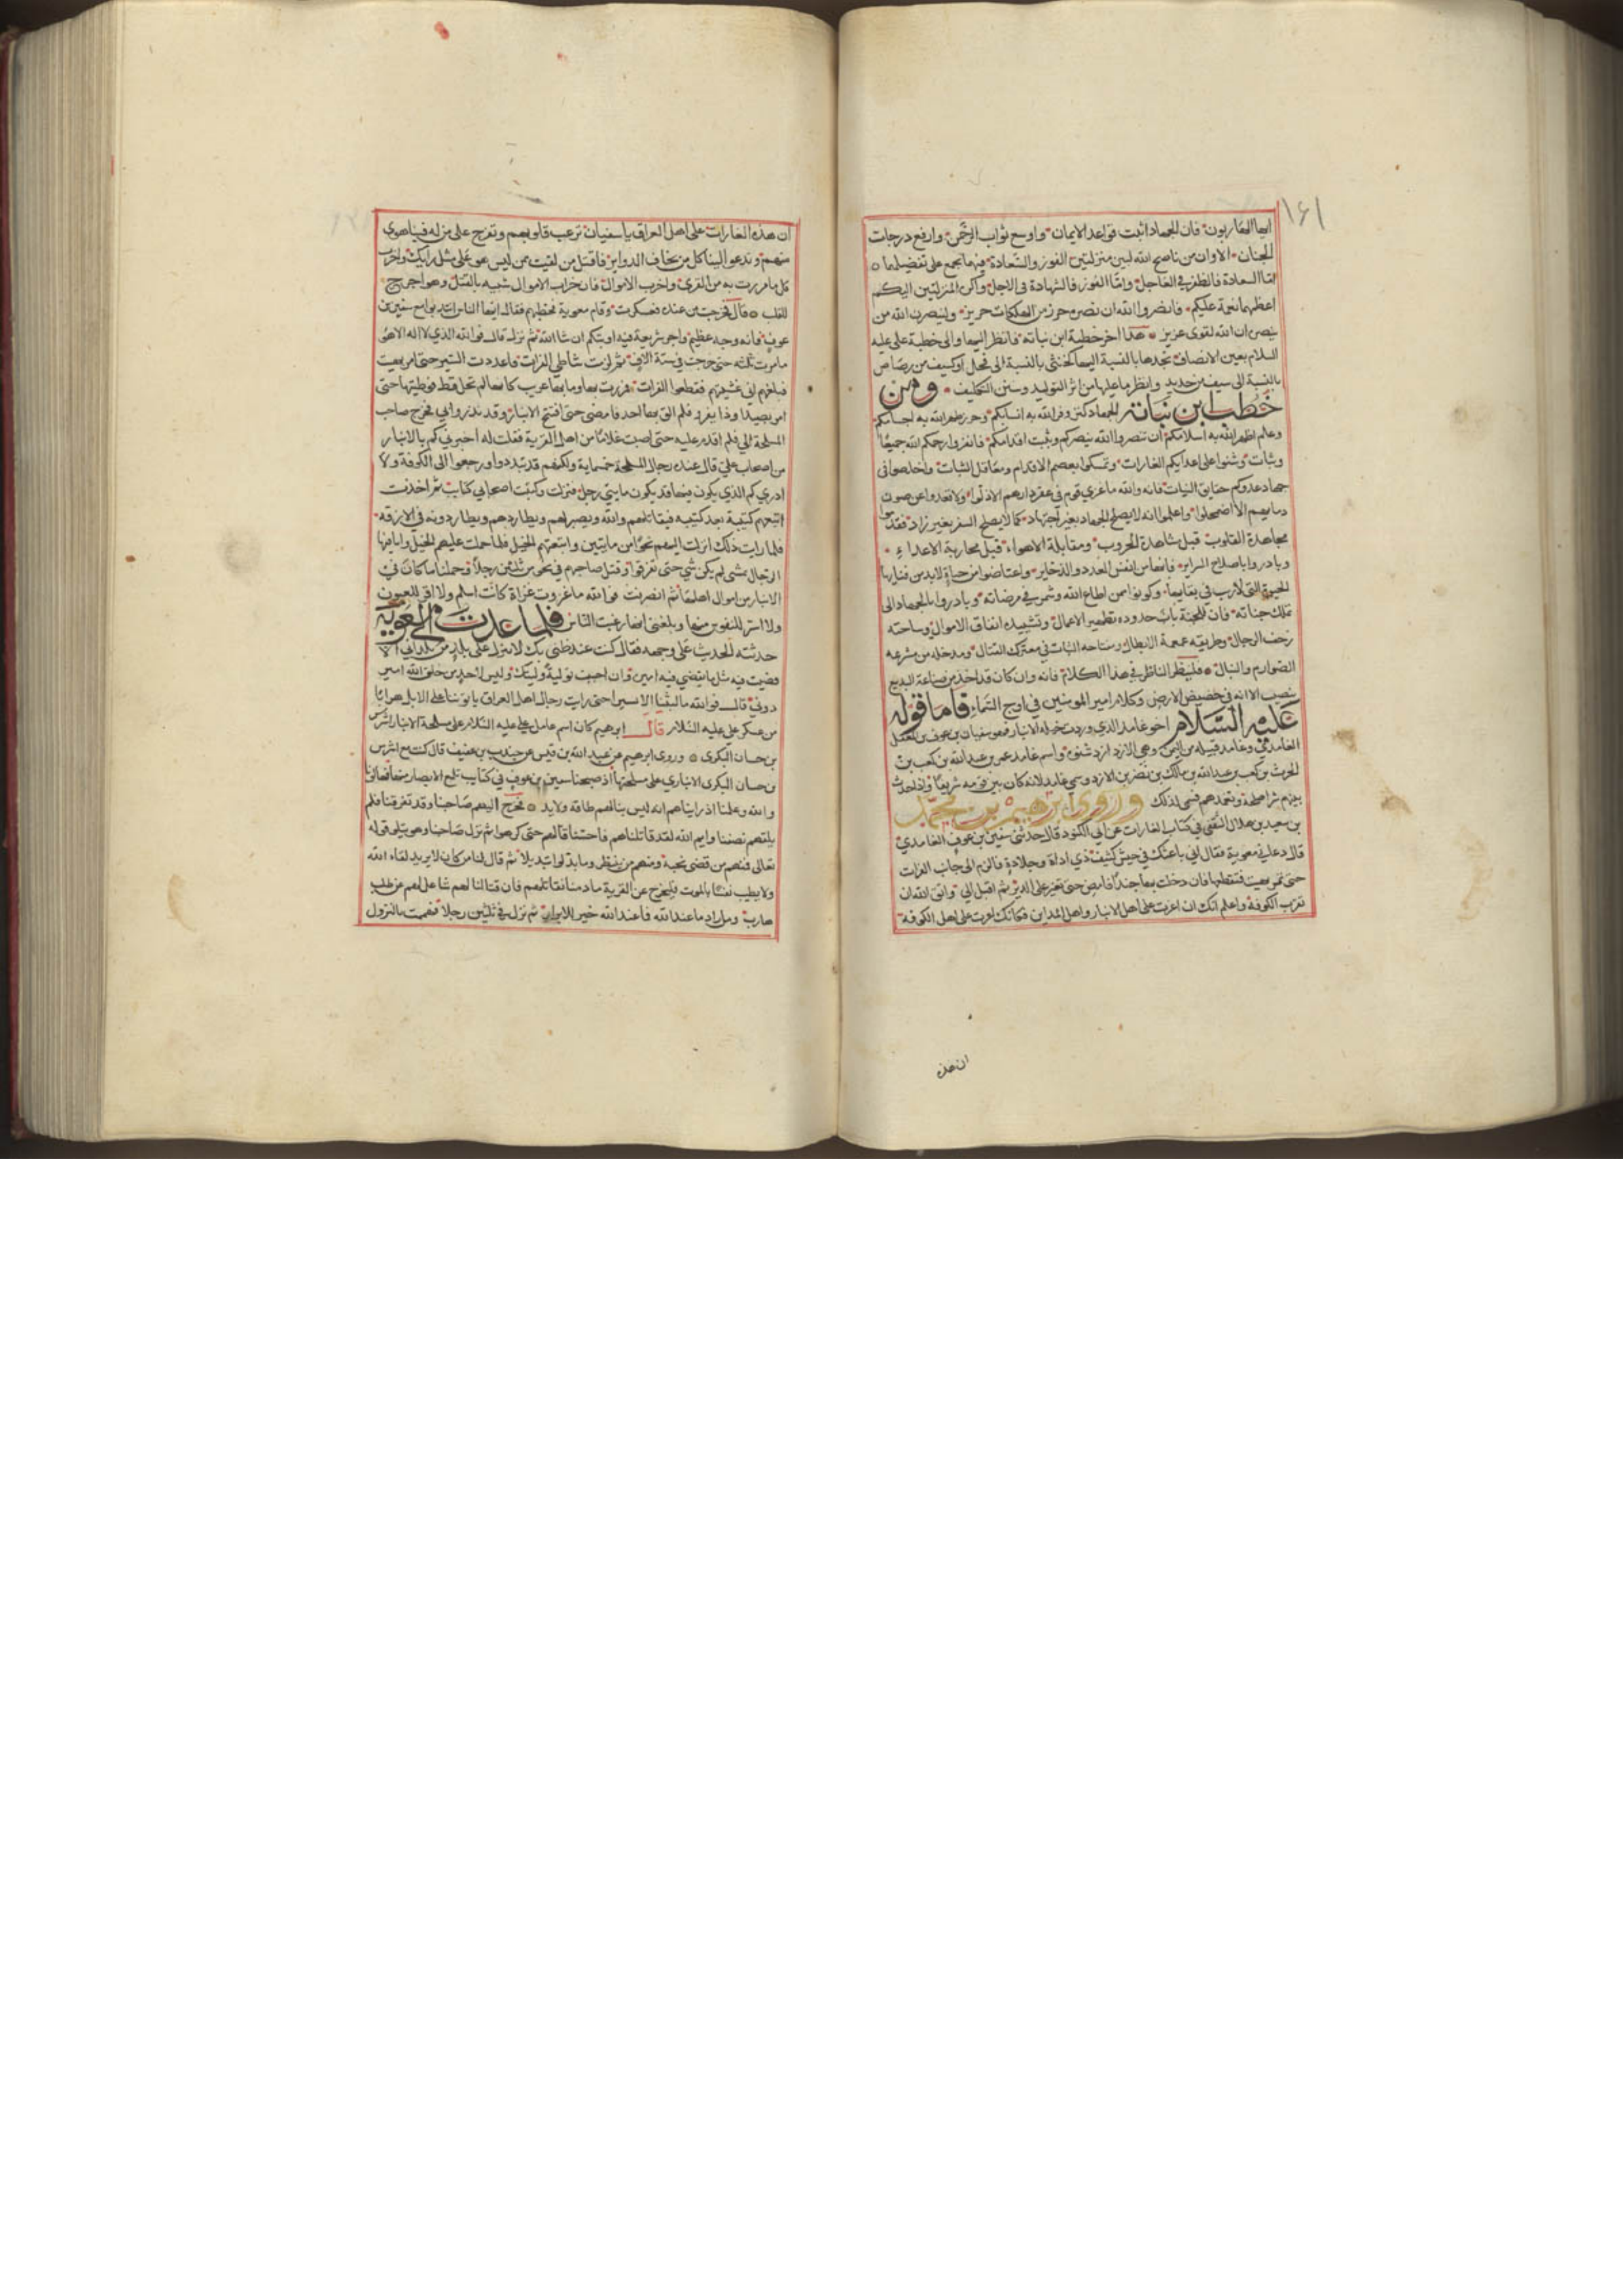 ١٦١
ايها الهاربون فان الجهاد اثبت قواعد الايمان واوسع ثواب الرحمن وارفع درجات
الجنان الا وان من ناصح الله لبين منزلتين الفوز والسعادة فيهما يجمع على تفضيلهما
اما السعادة فالظفر في العاجل واما الفوز فالشهادة في الاجل واكن المنزلتين اليكم
اعظمهما نعمة عليكم فانصروا الله ان نصره حرز من الهلكات حريز ولينصرن الله من
ينصره ان الله لقوي عزيز هذا اخر خطبة ابن نباته فانظر اليها والى خطبة على عليه
السلام بعين الانصاف تجدها بالنسبة اليها كمخنث بالنسبة الى فحل او كسيف من رصاص
بالنسبة الى سيف من حديد وانظر ما عليها من اثر التوليد وسنن التكليف ومن
خطب ابن نباته الجهاد كنز وفر الله به انسابكم وحرز طهر الله به اجسامكم
وعلم اظهر الله به اسلامكم ان تنصروا الله ينصركم ويثبت اقدامكم فانفروا رحمكم الله جميعا
وثبات وشنوا على اعدايكم الغارات وتمسكوا بعصم الاقدام ومعاقل الثبات واخلصوا في
جهاد عدوكم حقايق النيات فانه والله ما غزي قوم في عقر دارهم الا ذلوا ولا قعدوا عن صون
دمايهم الا اضمحلوا واعلموا انه لا يصلح الجهاد بغير اجتهاد كما لا يصلح السفر بغير زاد فقدموا
مجاهدة القلوب قبل مشاهدة الحروب ومقابلة الاهواء قبل محاربة الاعداء
وبادروا باصلاح السراير فانها من انفس العدد والذخاير واعتاضوا من حياة لا بد من فنايها
الحيوة التي لا ريب في بقايها وكونوا ممن اطاع الله وشمر في مرضاته وبادروا بالجهاد الى
تملك جناته فان للجنة بابا حدوده تطهير الاعمال وتشييده انفاق الاموال وساحته
زحف الرجال وطريقه غمغمة الابطال ومفتاحه الثبات في معترك القتال ومدخله من مشرعه
الصوارم والنبال فلينظر الناظر في هذا الكلام فانه وان كان قد اخذ من صناعة البديع
بنصيب الا انه في حضيض الارض وكلام امير المومنين في اوج السماء فاما قوله
عليه السلام اخو غامد الذي وردت خيله الانبار فهو سفيان بن عوف بن المغفل
الغامدي وغامد قبيله من اليمن وهي الازد ازد شنوه واسم غامد عمر بن عبد الله بن كعب بن
الحرث بن كعب بن عبد الله بن مالك بن نضر بن الازد وسمي غامدا لانه كان بين قومه شر
بينهم شرا صلحه وتغمدهم فسمي لذلك وروى ابرهيم بن محمد
بن سعيد بن هلال الثقفي في كتاب الغارات عن ابي الكنود قال حدثني سفين بن عوف الغامدي
قال دعاني معوية فقال اني باعثك في جيش كثيف ذي اداة وجلادة فالزم الى جانب الفرات
حتى تمر بهيت فتقطعها فان وجدت بها جندا فامض حتى تغير على ثم اقبل الي واتق الله ان
تقرب الكوفة واعلم انك ان اغرت على اهل الانبار واهل المداين فكانك اغرت على اهل الكوفة
ان هذه
ان هذه الغارات على اهل العراق يا سفيان ترعب قلوبهم وتفرح على من له فينا هوى
منهم وتدعو الينا كل من يخاف الدواير فاقتل من لقيت ممن ليس هو على مثل رايك واخرب
كل ما مررت به من القرى واخرب الاموال فان خراب الاموال شبيه بالقتل وهو اوجع
للقلب قال فخرجت من عنده فعسكرت وقام معوية فخطبهم فقال ايها الناس انتدبوا مع سفين بن
عوف فانه وجه عظيم واجر سريعة فيه اوبتكم ان شاالله ثم نزل قال فوالله الذي لا اله الا هو
ما مرت ثلثه حتى خرجت في ستة الاف ثم لزمت شاطي الفرات فاغددت السير حتى امر بهيت
فبلغهم اني غشيتهم فقطعوا الفرات فمررت بها وما بها عريب كانها لم تحل قط فوطيتها حتى
امر بصيدا وذا يفروا فلم الق بها احد فامضى حتى افتتح الانبار وقد نذروا بي فخرج صاحب
المسلحة الي فلم اقدم عليه حتى اصبت غلمانا من اهل القرية فقلت له اخبروني كم بالانبار
من اصحاب علي قال عنده رجال المسلحة خمسماية ولكنهم قد تبددوا ورجعوا الى الكوفة ولا
ادري كم الذي يكون فيها قد يكون مايتي رجل فنزلت وكتبت اصحابي كتايب ثم اخذت
ابعثهم كتيبة بعد كتيبه فيقاتلهم والله ويصبر لهم ويطاردهم ويطاردونه في الازقة
فلما رايت ذلك انزلت اليهم نحوا من مايتين واتبعتهم الخيل فلما حملت عليهم الخيل وامامها
الرجال تمشي لم يكن شي حتى تفرقوا وقتل صاحبهم في نحو من ثلثين رجلا وحملنا ما كان في
الانبار من اموال اهلها ثم انصرفت فوالله ما غزوت غزاة كانت اسلم ولا اقر للعيون
ولا اسر للنفوس منها وبلغني انها رعبت الناس فلما عدت الى معوية
حدثته الحديث على وجهه فقال كنت عند ظني بك لا تنزل في بلد من بلداني الا
قضيت فيه مثل ما يقضي فيه اميره وان احببت توليه وليتك وليس لاحد من خلق الله امير
دوني قال فوالله ما لبثنا الا يسيرا حتى رايت رجال اهل العراق ياتوننا على الابل هرابا
من عسكر علي عليه السلام قال ابرهيم كان اسم عامل علي عليه السلام على مسلحة الانبار اشرس
بن حسان البكري وروى ابرهيم عن عبد الله بن قيس عن حبيب بن عفيف قال كنت مع اشرس
بن حسان البكري الانباري على مسلحتها اذ صبحنا سفين بن عوف في كتايب تلمع الابصار منها فهالونا
والله وعلمنا اذ رايناهم انه ليس لنا بهم طاقه ولا يد فخرج اليهم صاحبنا وقد تفرقنا فلم
يلقهم نصفنا وايم الله لقد قاتلناهم فاحسنا قتالهم حتى كرهوا ثم نزل صاحبنا وهو يتلو قوله
تعالى فمنهم من قضى نحبه ومنهم من ينتظر وما بدلوا تبديلا ثم قال لنا من كان لا يريد لقاء الله
ولا يطيب نفسا بالموت فليخرج عن القرية ما دمنا نقاتلهم فان قتالنا لهم شاغل لهم عن طلب
هارب ومن اراد ما عند الله فما عند الله خير للابرار ثم نزل في ثلثين رجلا فهممت بالنزول